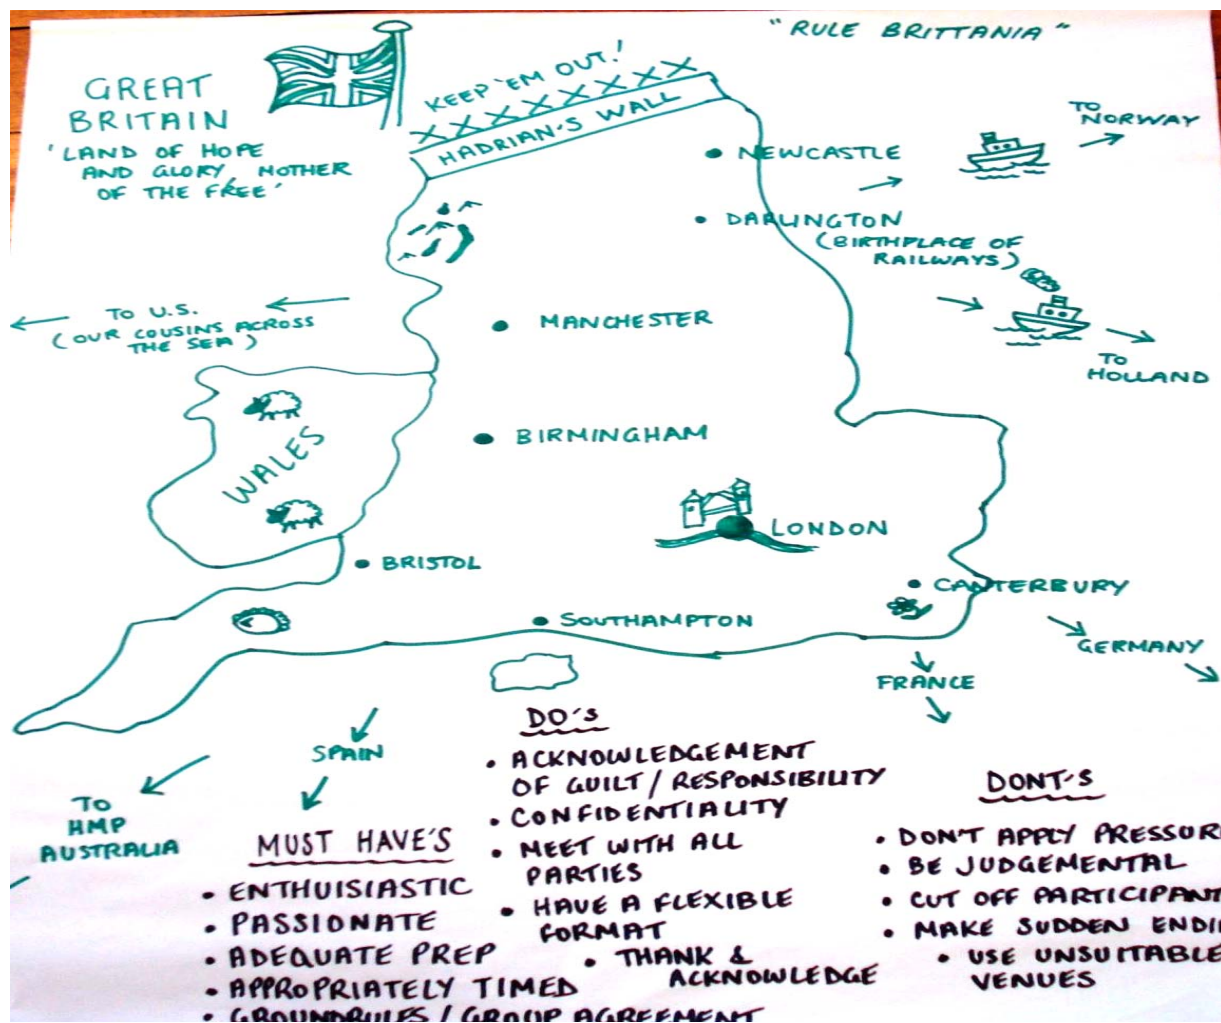 "RULE BRITTANIA"
GREAT
BRITAIN
'LAND OF HOPE
AND GLORY, MOTHER
OF THE FREE'
KEEP 'EM OUT!
HADRIAN'S WALL
NEWCASTLE
TO
NORWAY
DARLINGTON
(BIRTHPLACE OF
RAILWAYS)
TO U.S.
(OUR COUSINS ACROSS
THE SEA)
MANCHESTER
TO
HOLLAND
WALES
BIRMINGHAM
LONDON
BRISTOL
CANTERBURY
SOUTHAMPTON
GERMANY
FRANCE
SPAIN
TO
HMP
AUSTRALIA
MUST HAVE'S
• ENTHUISIASTIC
• PASSIONATE
• ADEQUATE PREP
• APPROPRIATELY TIMED
• GROUNDRULES / GROUP AGREEMENT
DO'S
• ACKNOWLEDGEMENT
OF GUILT / RESPONSIBILITY
• CONFIDENTIALITY
• MEET WITH ALL
PARTIES
• HAVE A FLEXIBLE
FORMAT
• THANK &
ACKNOWLEDGE
DONT'S
• DON'T APPLY PRESSUR
• BE JUDGEMENTAL
• CUT OFF PARTICIPANT
• MAKE SUDDEN ENDI
• USE UNSUITABLE
VENUES